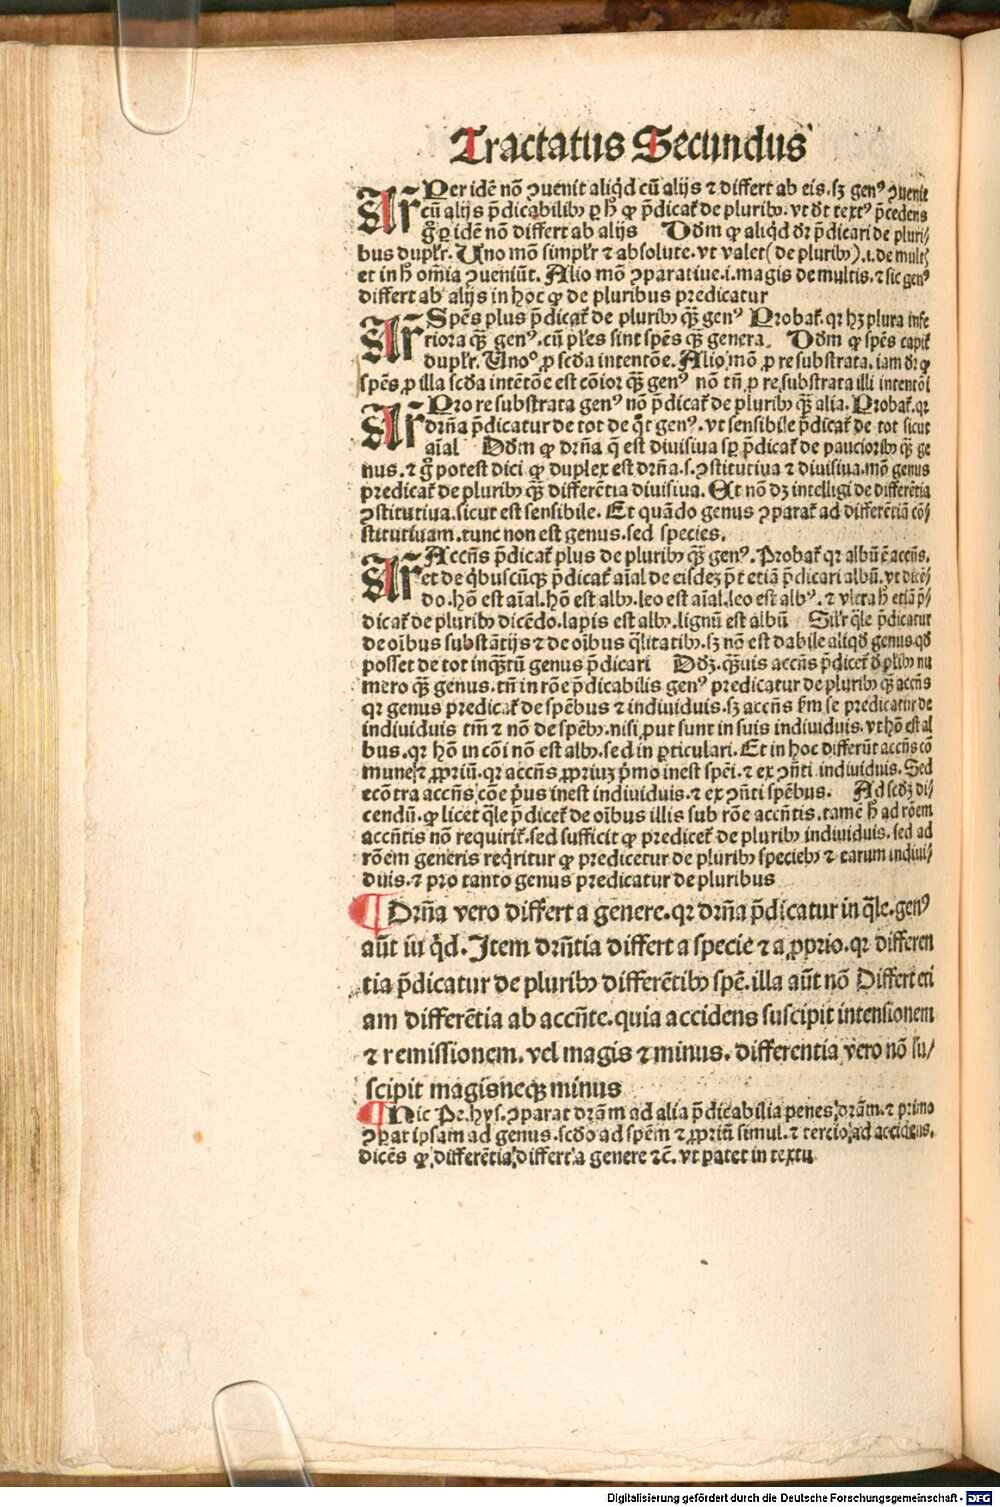 Tractatus Secundus
Ar̄ Per idē nō ꝯuenit aliqͥd cū alijs ⁊ differt ab eis. sꝫ genꝰ ꝯuenit
cū alijs p̄dicabilibꝫ ꝑ h̄ ꝙ p̄dicat̄ de pluribꝫ. vt dt̄ textꝰ p̄cedens
g̊ ꝑ idē nō differt ab alijs Dd̄m ꝙ aliqͥd dr̄ p̄dicari de pluri/
bus duplr̄. Uno mō simplr̄ ⁊ absolute. vt valet (de pluribꝫ) .i. de mult̄
et in h̄ om̄ia ꝯueniūt. Alio mō ꝯparatiue .i. magis de multis. ⁊ sic genꝰ
differt ab alijs in hoc ꝙ de pluribus predicatur
Ar̄ Spēs plus p̄dicat̄ de pluribꝫ qͣꝫ genꝰ Probat̄. qꝛ hꝫ plura infe
riora qͣꝫ genꝰ. cū pl̄es sint spēs qͣꝫ genera. Dd̄m ꝙ spēs capit̄
duplr̄. Unoº ꝓ scd̄a intentōe. Alio mō ꝓ re substrata. iam dr̄ ꝙ
spēs ꝓ illa scd̄a intētōe est cōior qͣꝫ genꝰ nō tn̄ ꝓ re substrata illi intentōi
Ar̄ Pro re substrata genꝰ nō p̄dicat̄ de pluribꝫ qͣꝫ alia. Probat̄. qꝛ
drn̄a p̄dicatur de tot de qͦt genꝰ. vt sensibile p̄dicat̄ de tot sicut
aīal Dd̄m ꝙ drn̄a q̄ est diuisiua sꝑ p̄dicat̄ de paucioribꝫ qͣꝫ ge
nus. ⁊ g̊ potest dici ꝙ duplex est drn̄a .s. ꝯstitutiua ⁊ diuisiua. mō genus
predicat̄ de pluribꝫ qͣꝫ differētia diuisiua. Et nō dꝫ intelligi de differētia
ꝯstitutiua. sicut est sensibile. Et quādo genus ꝯparat̄ ad differētiā cō/
stitutiuam. tunc non est genus. sed species.
Ar̄ Accn̄s p̄dicat̄ plus de pluribꝫ qͣꝫ genꝰ. Probat̄ qꝛ albū ē accn̄s.
et de qͥbuscūqꝫ p̄dicat̄ aīal de eisdeꝫ p̄t etiā p̄dicari albū. vt dicē/
do. hō est aīal. hō est albꝰ. leo est aīal. leo est albꝰ. ⁊ vltra h̄ etiā p̄/
dicat̄ de pluribꝫ dicēdo. lapis est albꝰ. lignū est albū Silr̄ qͣle p̄dicatur
de oībus substātijs ⁊ de oībus qͣlitatibꝫ. sꝫ nō est dabile aliqd̄ genus. qd̄
posset de tot inqͣꝫtū genus p̄dicari Dd̄ꝫ. qͣꝫuis accn̄s p̄dicet̄ d̄ pl̄ibꝫ nu
mero qͣꝫ genus. tn̄ in rōe p̄dicabilis genꝰ predicatur de pluribꝫ qͣꝫ accn̄s
qꝛ genus predicat̄ de spēbus ⁊ indiuiduis. sꝫ accn̄s fm̄ se predicatur de
indiuiduis tm̄ ⁊ nō de spēbꝫ. nisi ꝓut sunt in suis indiuiduis. vt hō est al
bus. qꝛ hō in cōi nō est albꝰ. sed in ꝑticulari. Et in hoc differūt accn̄s cō
mune ⁊ ꝓpriū. qꝛ accn̄s ꝓpriuꝫ p̄mo inest spēi. ⁊ ex ꝯn̄ti indiuiduis. Sed
ecōtra accn̄s cōe pͥus inest indiuiduis. ⁊ ex ꝯn̄ti spēbus. Ad scd̄ꝫ di/
cendū. ꝙ licet qͣle p̄dicet̄ de oībus illis sub rōe accn̄tis. tamē h̄ ad rōem
accn̄tis nō requirit̄. sed sufficit ꝙ predicet̄ de pluribꝫ indiuiduis. sed ad
rōem generis reqͥritur ꝙ predicetur de pluribꝫ speciebꝫ ⁊ earum indiui/
duis. ⁊ pro tanto genus predicatur de pluribus
¶ Drn̄a vero differt a genere. qꝛ drn̄a p̄dicatur in qͣle. genꝰ
aūt in qͥd. Item drn̄tia differt a specie ⁊ a ꝓprio. qꝛ differen
tia p̄dicatur de pluribꝫ differētibꝫ spē. illa aūt nō Differt eti
am differētia ab accn̄te. quia accidens suscipit intensionem
⁊ remissionem. vel magis ⁊ minus. differentia vero nō su/
scipit magis neqꝫ minus
¶ Hic Por̄phys. ꝯparat drāꝫ ad alia p̄dicabilia penes drām. ⁊ primo
ꝯꝑat ipsam ad genus. scd̄o ad spēm ⁊ ꝓpriū simul. ⁊ tercio ad accidens.
dicēs ꝙ differētia differt a genere ⁊c̄. vt patet in textu
Digitalisierung gefördert durch die Deutsche Forschungsgemeinschaft - DFG